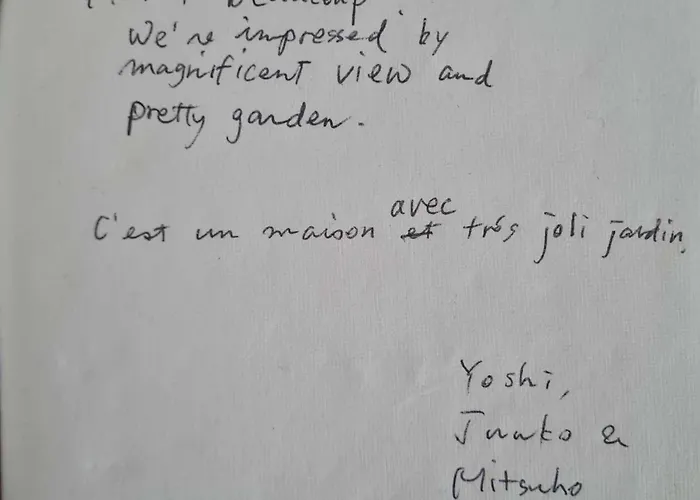 beaucoup.
We're impressed by
magnificent view and
pretty garden.
avec
C'est un maison et trés joli jardin,
Yoshi,
Junko &
Mitsuho